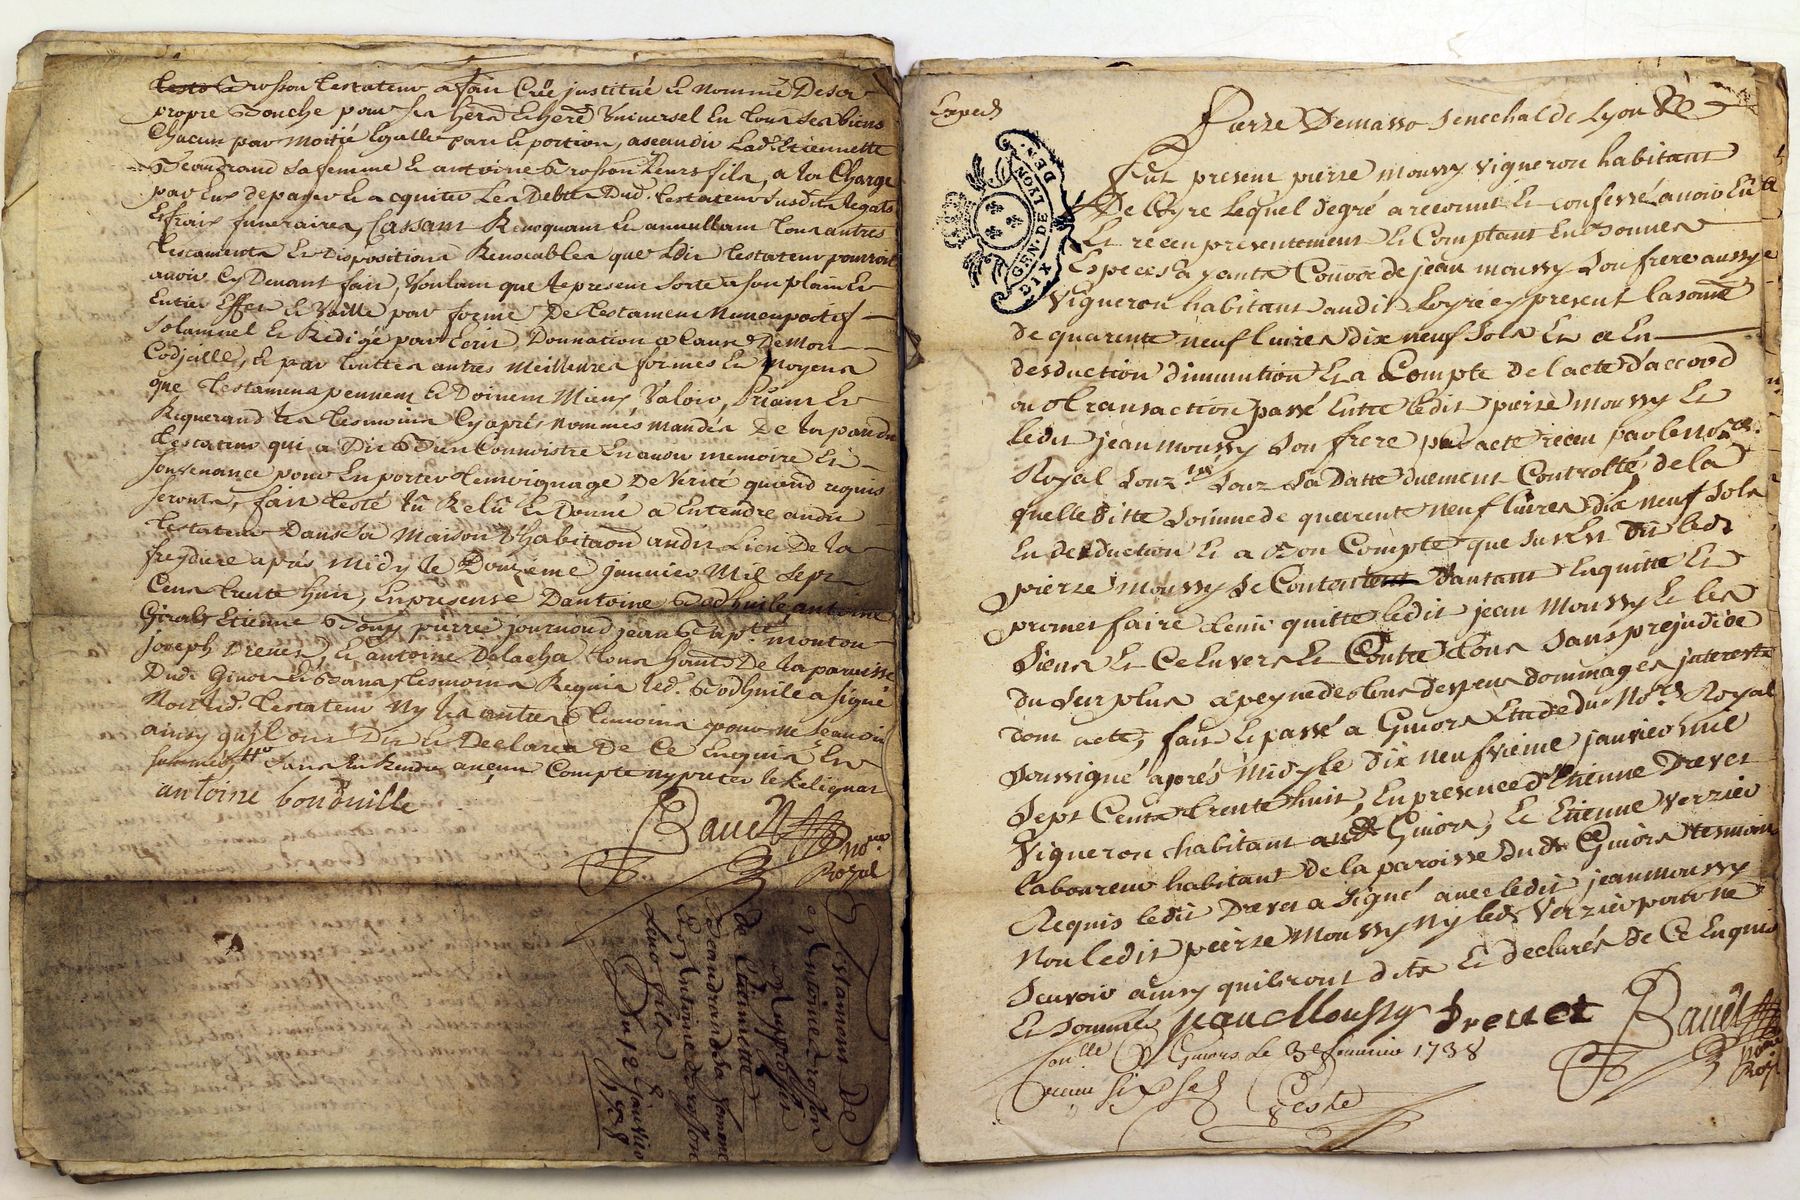 testo Grosson testateur a fait Créé justitué et nommé De sa
propre Bouche pour ses herd et hered Universel En tous ses biens
Chacun par Moitié Egalle part et portion, a scavoir Lad. Etiennette
Beaudrand sa femme et antoine Grosson Leurs fils, a la Charge
par Eux de payer et acquiter Les Debtes Dud. testateur susdits legats
Et frais funeraires, Cassant Revoquant et annullant tous autres
testaments et Dispositions Revocables que Ledit testateur pourroit
avoir Cy Devant fait, Voulant que le present sorte a son plain Et
Entier Effet et Vaille par forme De testament Nuncupatif
solamnel et Redigé par Ecrit, Donnation a Cause De Mort
Codjcille, et par touttes autres Meilleures formes et Moyens
que testaments peuvent et Doivent Mieux Valoir, Priant Et
Requerant les tesmoins Cy aprés Nommés mandés De la part du
testateur qui a Dit Bien Connoistre En avoir memoire Et
souvenance pour En porter temoignage De Verité quand requis
seronts, fait testé lû Relû et Donné a Entendre audit
testateur Dans sa Maison D'habitaon audit Lieu De la
freydure aprés Midy le Douzieme januier Mil sept
Cents trente huit, En presence D'antoine Bodhuile, antoine
Giraly Etienne Bony pierre journoud jean Bapte. monton
joseph Drevet, et antoine Delacha tous habitts De la paroisse
Dud. Givors et Banas tesmoins Requis led. Bodhuile a signé
Non led. testateur Ny les autres temoins pour ne scavoir
ainsy qu'ils ont Dit et Declarés De Ce Enquis Et
sommés sans En Rendre aucun Compte Ny preter le Reliquat
antoine bonduille
Bauet
No.re
Royal
Testament De
Antoine Grosson
Au proffit
de Etiennette
Beaudrand sa femme
Et Antoine Grosson
Leurs fils
Du 12e Janvier
1738
Exped.
Pierre Demasso Senechal de Lyon &
Fut present pierre moussy vigneron habitant
De Loyre Lequel de gré a reconnut Et confessé avoir Eu
Et receu presentement Et Comptant En Bonnes
Especes a yants Cours de jean moussy son frere aussy
Vigneron habitant audit Loyre cy present la somme
de quarente neuf livres dix neuf sols Et ce En
desduction diminution Et a Compte de l'acte d'accord
ou transaction passé Entre ledit pierre moussy Et
ledit jean moussy son frere par acte receu par le No.re
Royal souz.né souz sa Datte duement Controllé de la
quelle ditte somme de quarente neuf livres dix neuf sols
En desduction Et a Bon Compte que susEst Dit led.
pierre moussy se Contentent d'autant En quitte Et
promet faire tenir quitte ledit jean Moussy Et les
siens Et Ce Envers Et Contre tous sans prejudice
du surplus a peyne de tous depens dommages jnterests
dont acte, fait Et passé a Givors Etude du No.re Royal
soussigné aprés Midy le dix neufvieme janvier mil
sept Cents trente huit, En presence d'Etienne Drevet
vigneron habitant aud. Givors, Et Etienne verzier
laboureur habitant de la paroisse dud. Givors temoins
Requis ledit Drevet a signé avec ledit jean moussy
Non ledit pierre moussy Ny led. Verzier pour ne
scavoir ainsy qu'ils ont dits Et declarés de Ce Enquis
Et sommés
jean Moussy
Drevet
Bauet
No.re
Roy.
Coll.e a Givors Le 3e fevrier 1738
Receu six sols
Teste
GEN. DE LYON